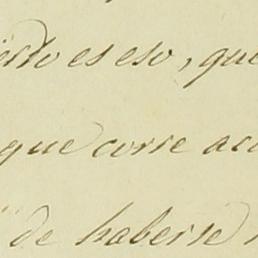 esto es eso, que
que corre
de haberse